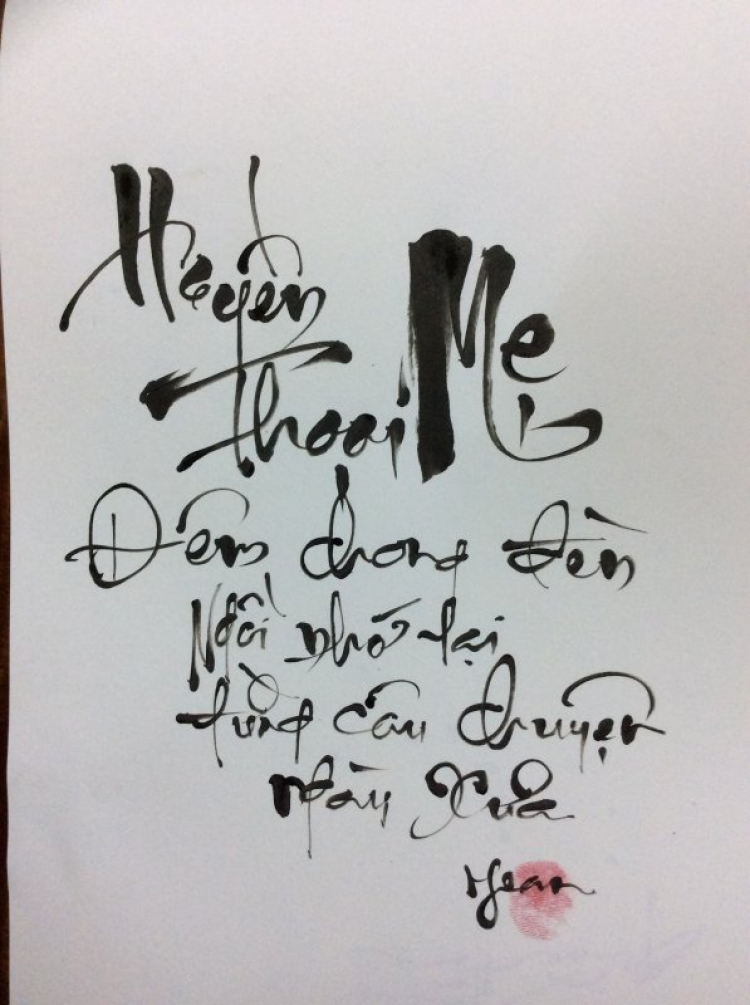 Huyền
Thoại Mẹ
Đêm chong đèn
Ngồi nhớ lại
từng câu chuyện
ngày xưa